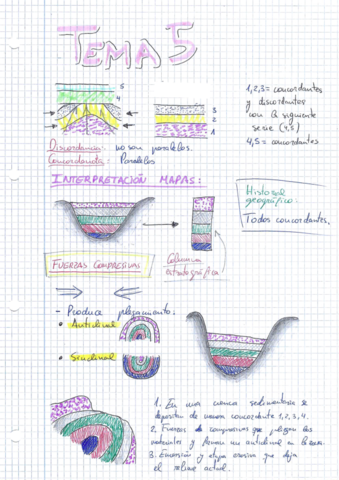 TEMA 5
5
4
3
2
1
1,2,3 = concordantes
y discordantes
con la siguiente
serie (4,5)
4,5 = concordantes
Discordancia: no son paralelos.
Concordancia: Paralelos
INTERPRETACIÓN MAPAS:
Historial
geográfico:
Todos concordantes.
Columna
estratigráfica
FUERZAS COMPRESIVAS
- Produce plegamiento:
• Anticlinal
• Sinclinal
1. En una cuenca sedimentaria se
depositan de manera concordante 1,2,3,4.
2. Fuerzas de compresivas que pliegan los
materiales y forman un anticlinal
3. Emersión y etapa erosiva que deja
el relieve actual.